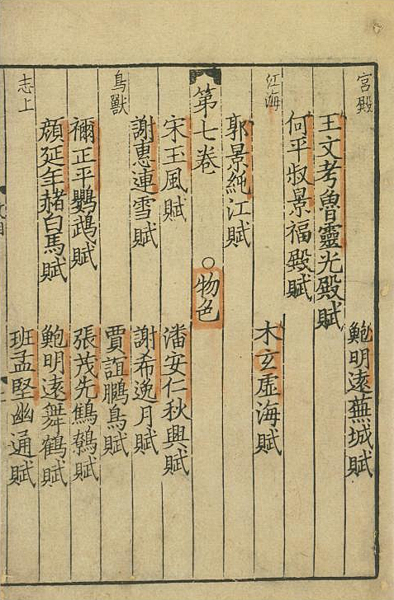 鮑明遠蕪城賦
宮殿
王文考魯靈光殿賦
何平叔景福殿賦
江海
木玄虛海賦
郭景純江賦
第七卷
○物色
宋玉風賦
潘安仁秋興賦
謝惠連雪賦
謝希逸月賦
鳥獸
賈誼鵬鳥賦
禰正平鸚鵡賦
張茂先鷦鷯賦
顏延年赭白馬賦
鮑明遠舞鶴賦
志上
班孟堅幽通賦